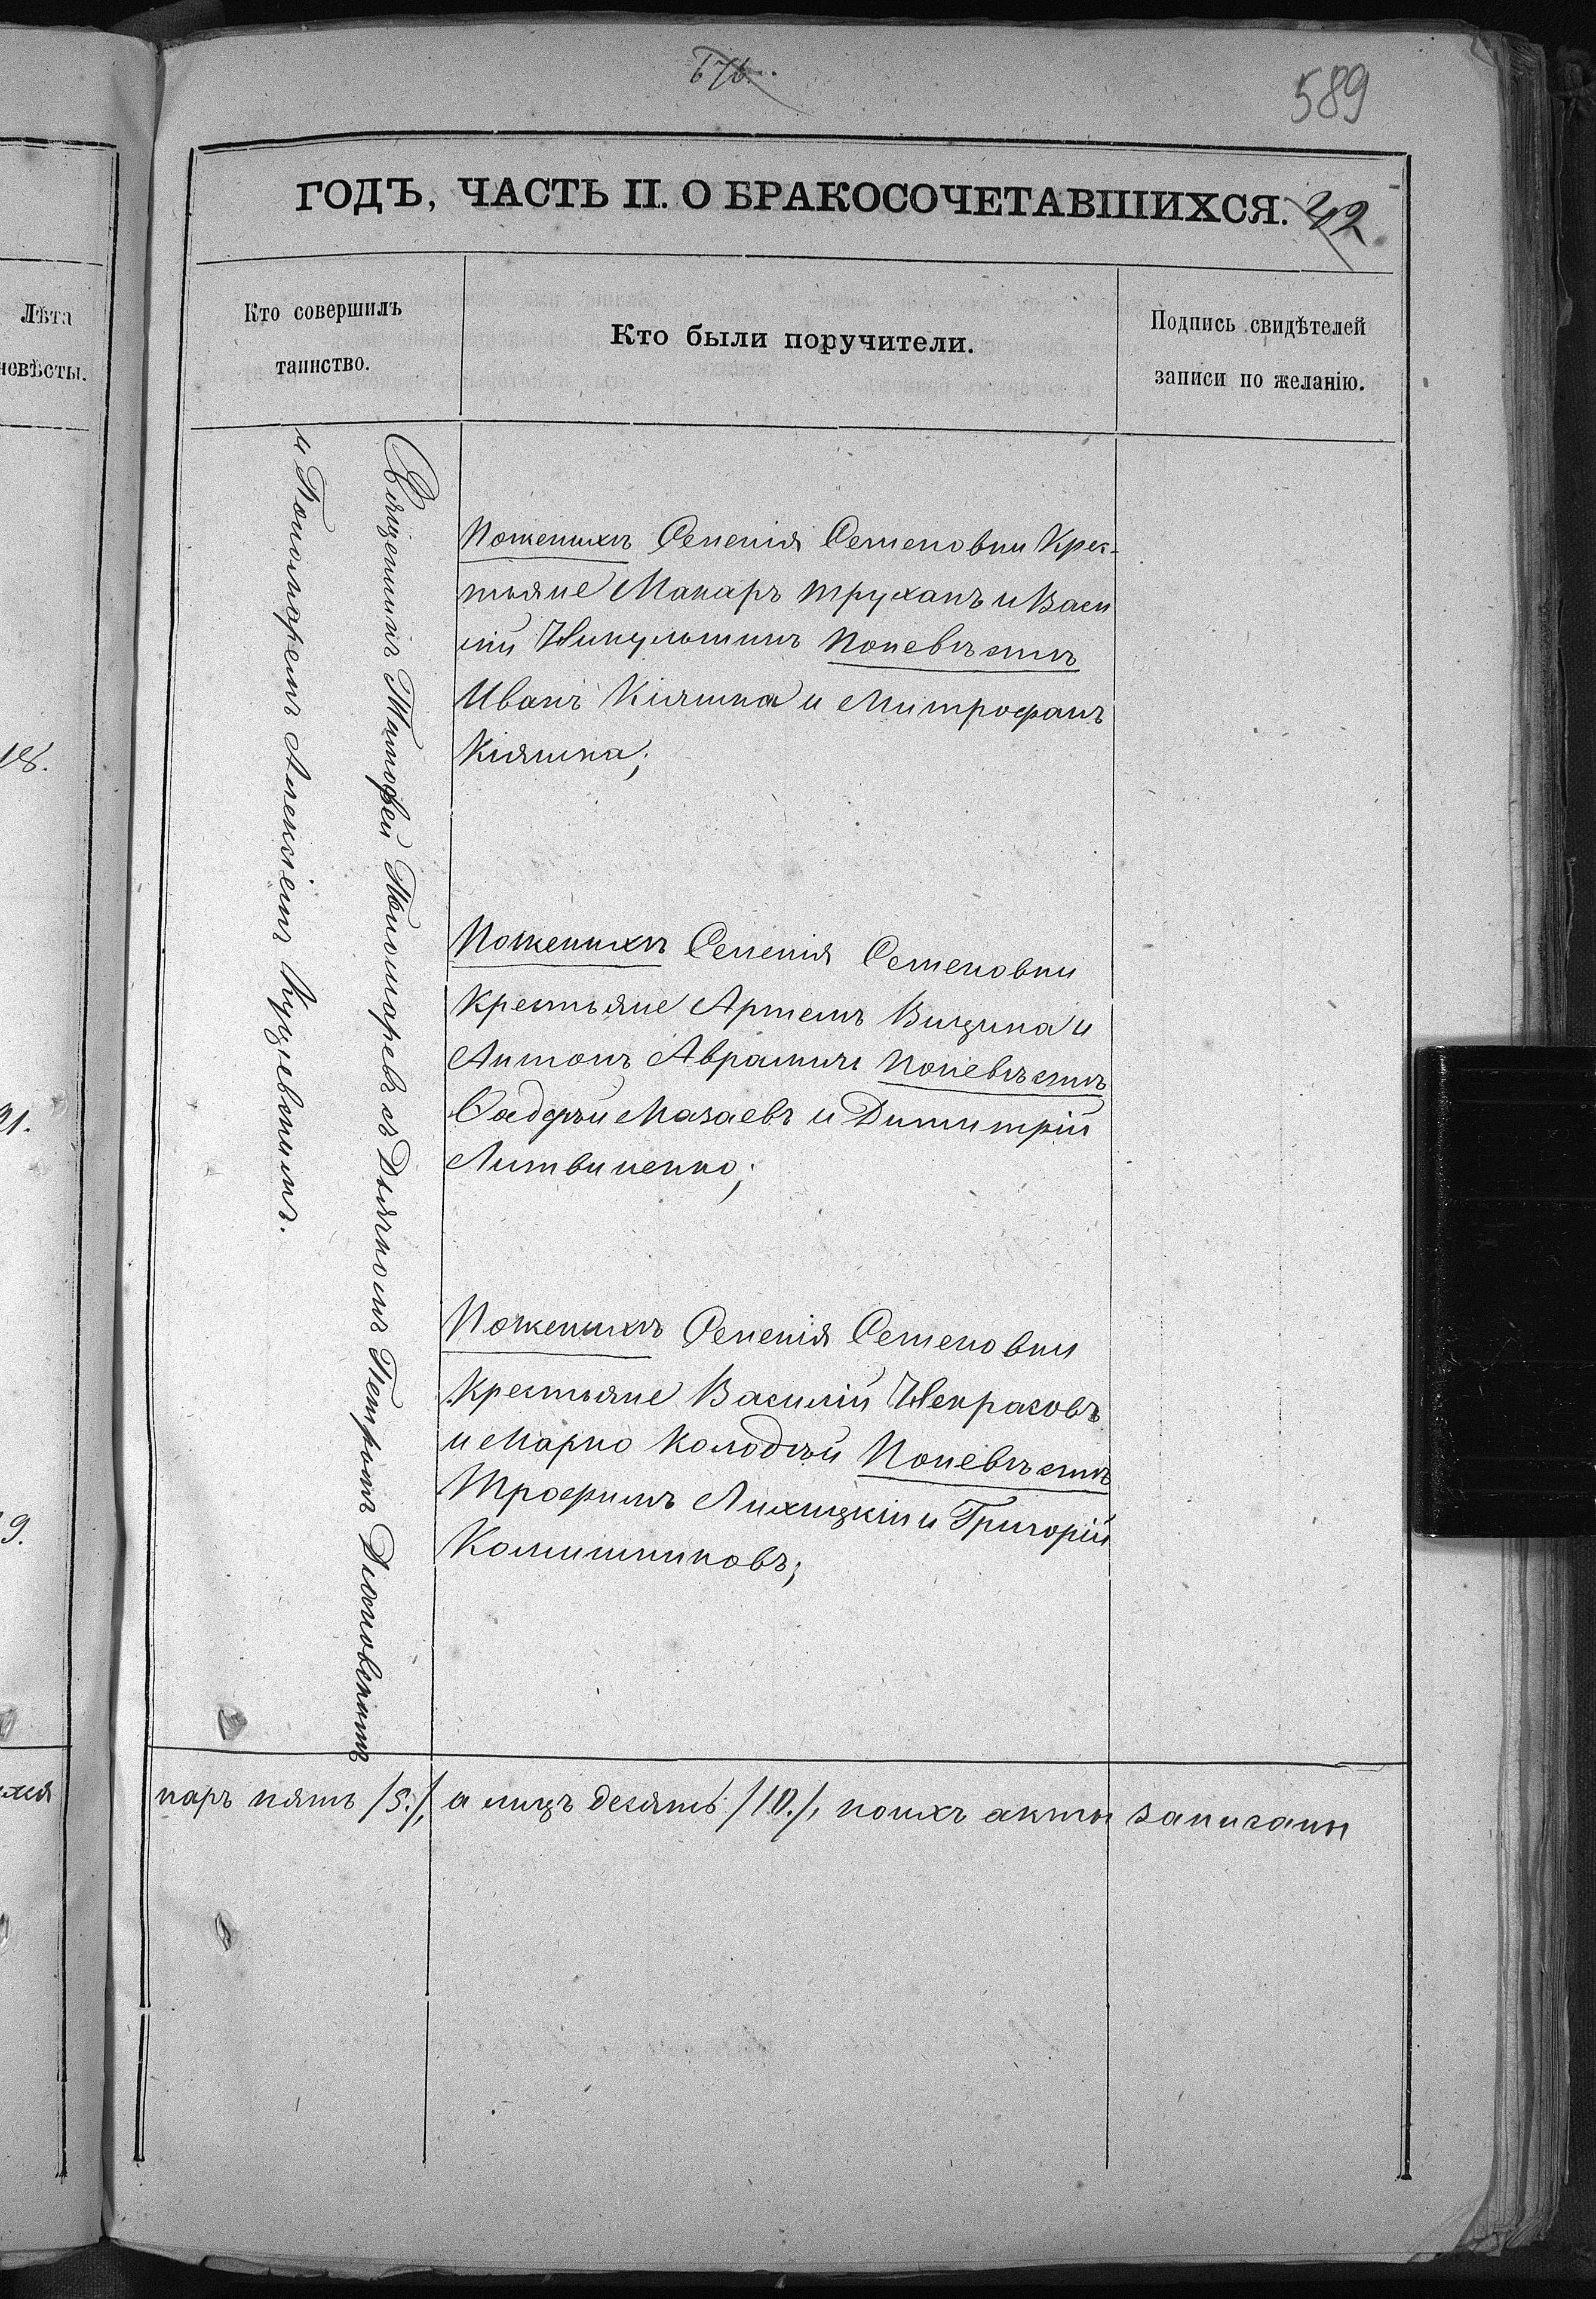 676.
589
ГОДЪ, ЧАСТЬ II. О БРАКОСОЧЕТАВШИХСЯ.
Лѣта
невѣсты.
Кто совершилъ
таинство.
Кто были поручители.
Подпись свидѣтелей
записи по желанію.
18.
21.
9.
Священникъ Тимофей Пономаревъ съ Дьячкомъ Петромъ
и Пономаремъ Алексіемъ Кущевскимъ.
Поженихѣ Селенія Семеновки Крес-
тьяне Макаръ Труханъ и Васи
лій Никульшинъ Поневѣстѣ
Иванъ Кіяшка и Митрофанъ
Кіяшка;
Поженихѣ Селенія Семеновки
Крестьяне Артемъ Вицина и
Антонъ Аврамичъ Поневѣстѣ
Фадѣй Мазаевъ и Димитрій
Литвиненко;
Поженихѣ Селенія Семеновки
Крестьяне Василій Некрасовъ
и Марко Колодѣй Поневѣстѣ
Трофимъ Лихицкій и Григорій
Комишниковъ;
паръ пять /5./, а лицъ десять /10./, коихъ акты записаны